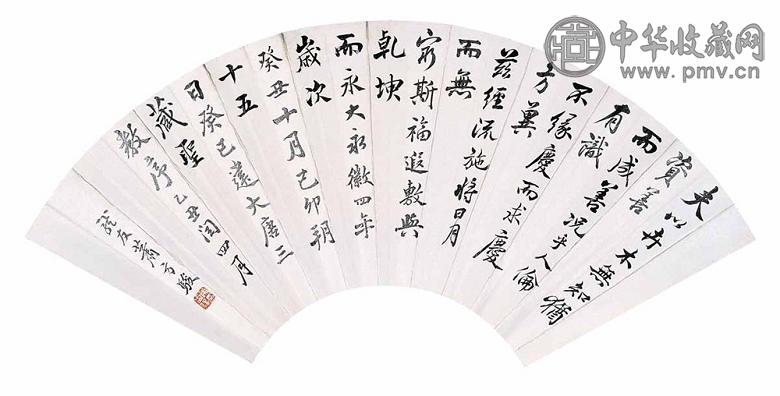 夫以卉木無知猶
資善
而成善況乎人倫
有識
不緣慶而求慶
方冀
茲經流施將日月
而無
窮斯福遐敷與
乾坤
而永大永徽四年
歲次
癸丑十月己卯朔
十五
日癸巳建大唐三
藏聖
教序乙丑閏四月
龍友蕭方駿
中华收藏网
www.pmv.cn